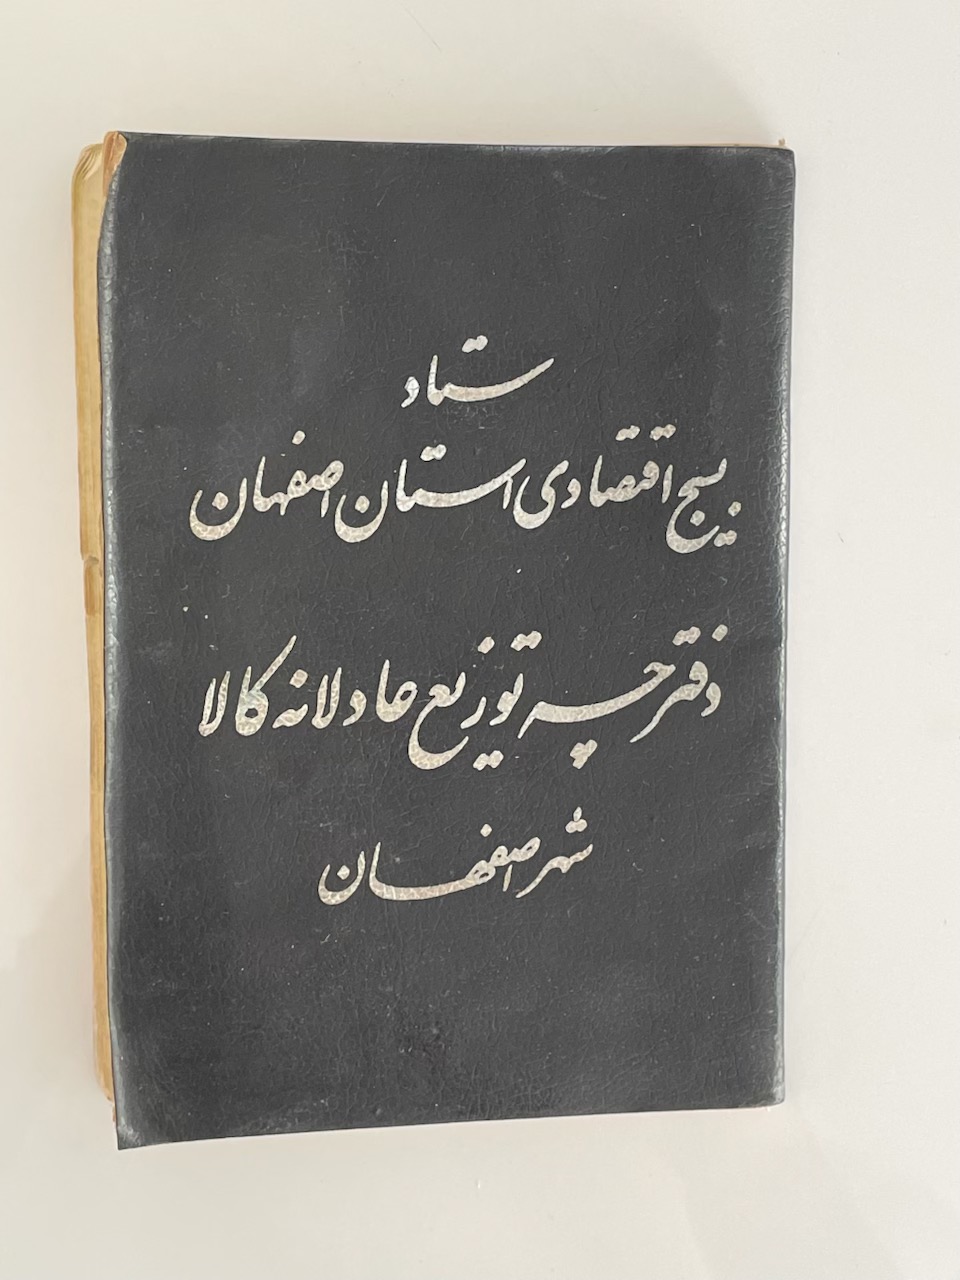 ستاد
بسیج اقتصادی استان اصفهان
دفترچه توزیع عادلانه کالا
شهر اصفهان